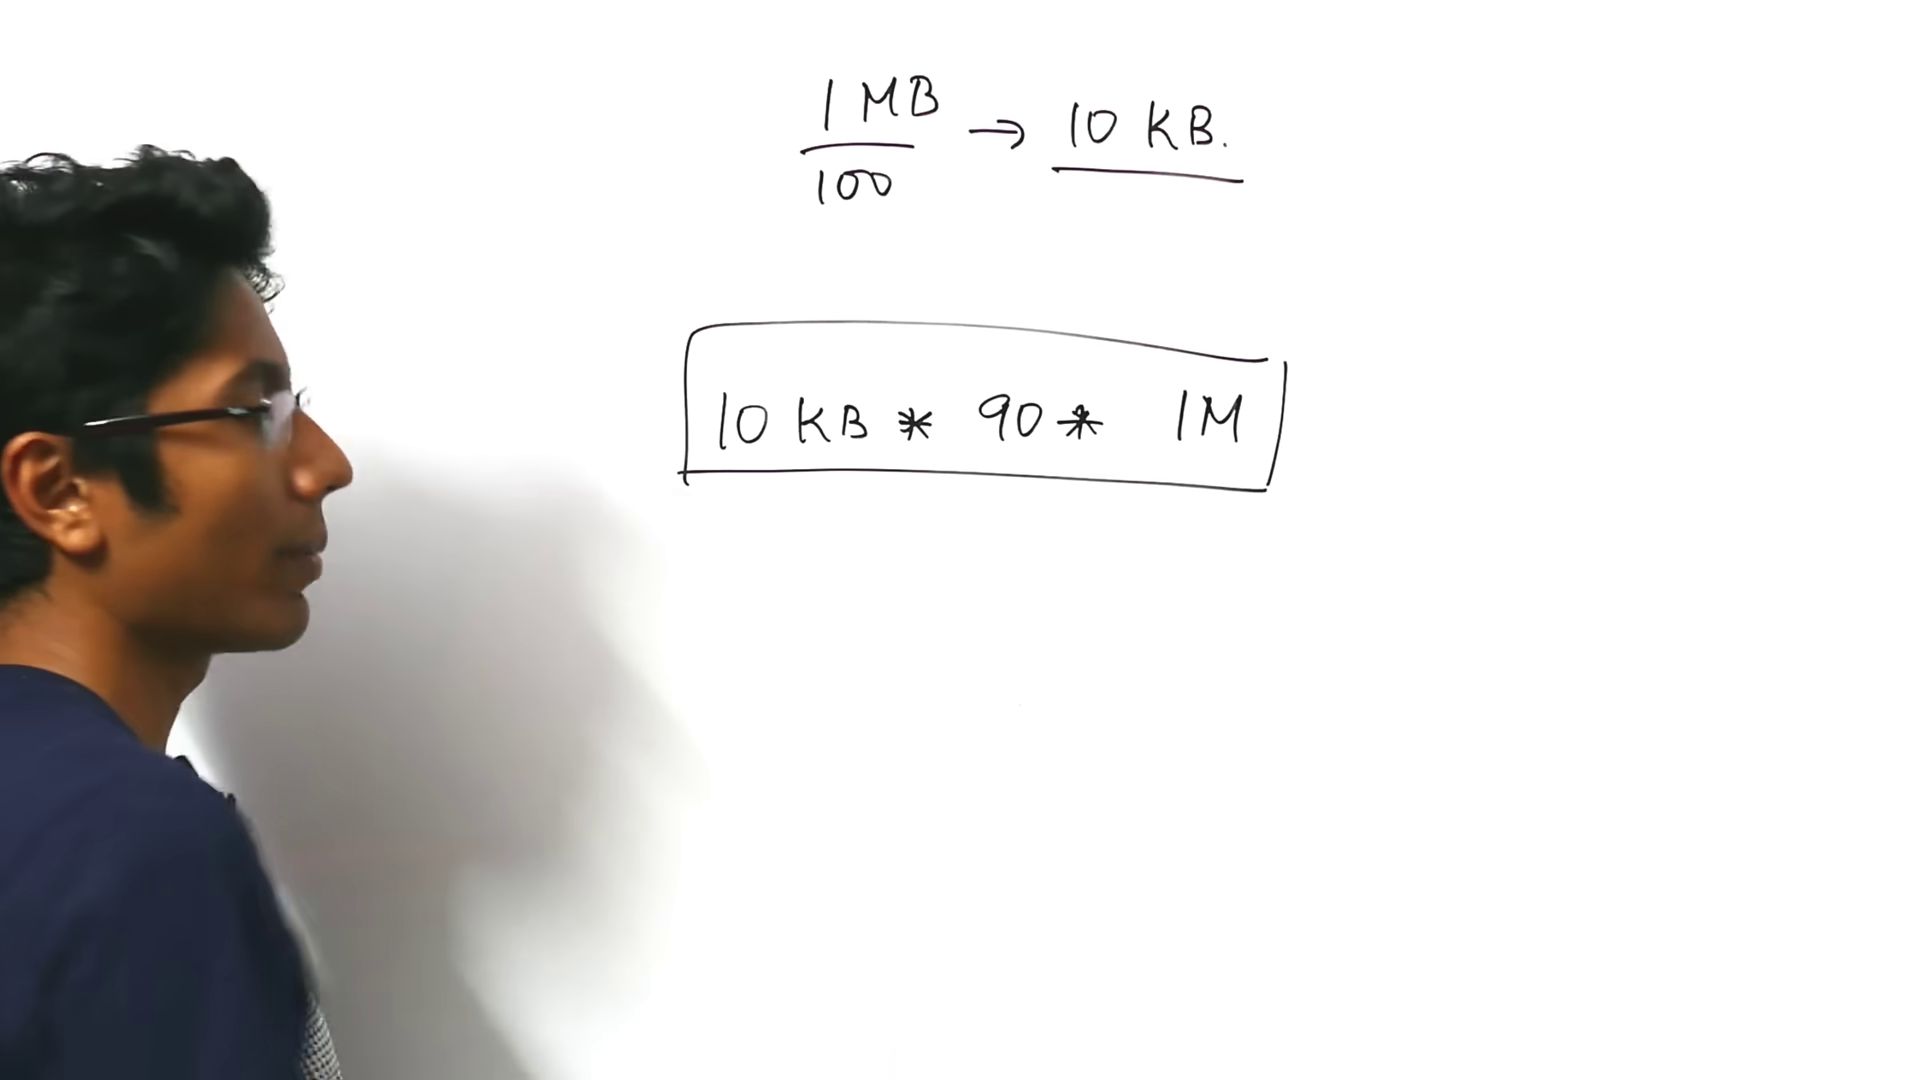 1 MB
100
→ 10 KB.
10 KB * 90 * 1M